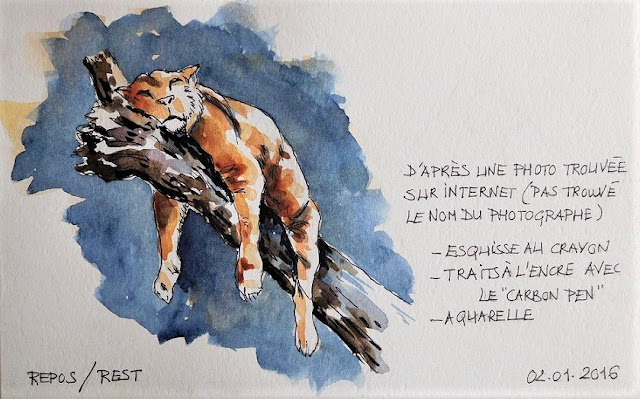 D'APRÈS UNE PHOTO TROUVÉE
SUR INTERNET (PAS TROUVÉ
LE NOM DU PHOTOGRAPHE)
- ESQUISSE AU CRAYON
- TRAITS À L'ENCRE AVEC
LE "CARBON PEN"
- AQUARELLE
REPOS / REST
02.01.2016